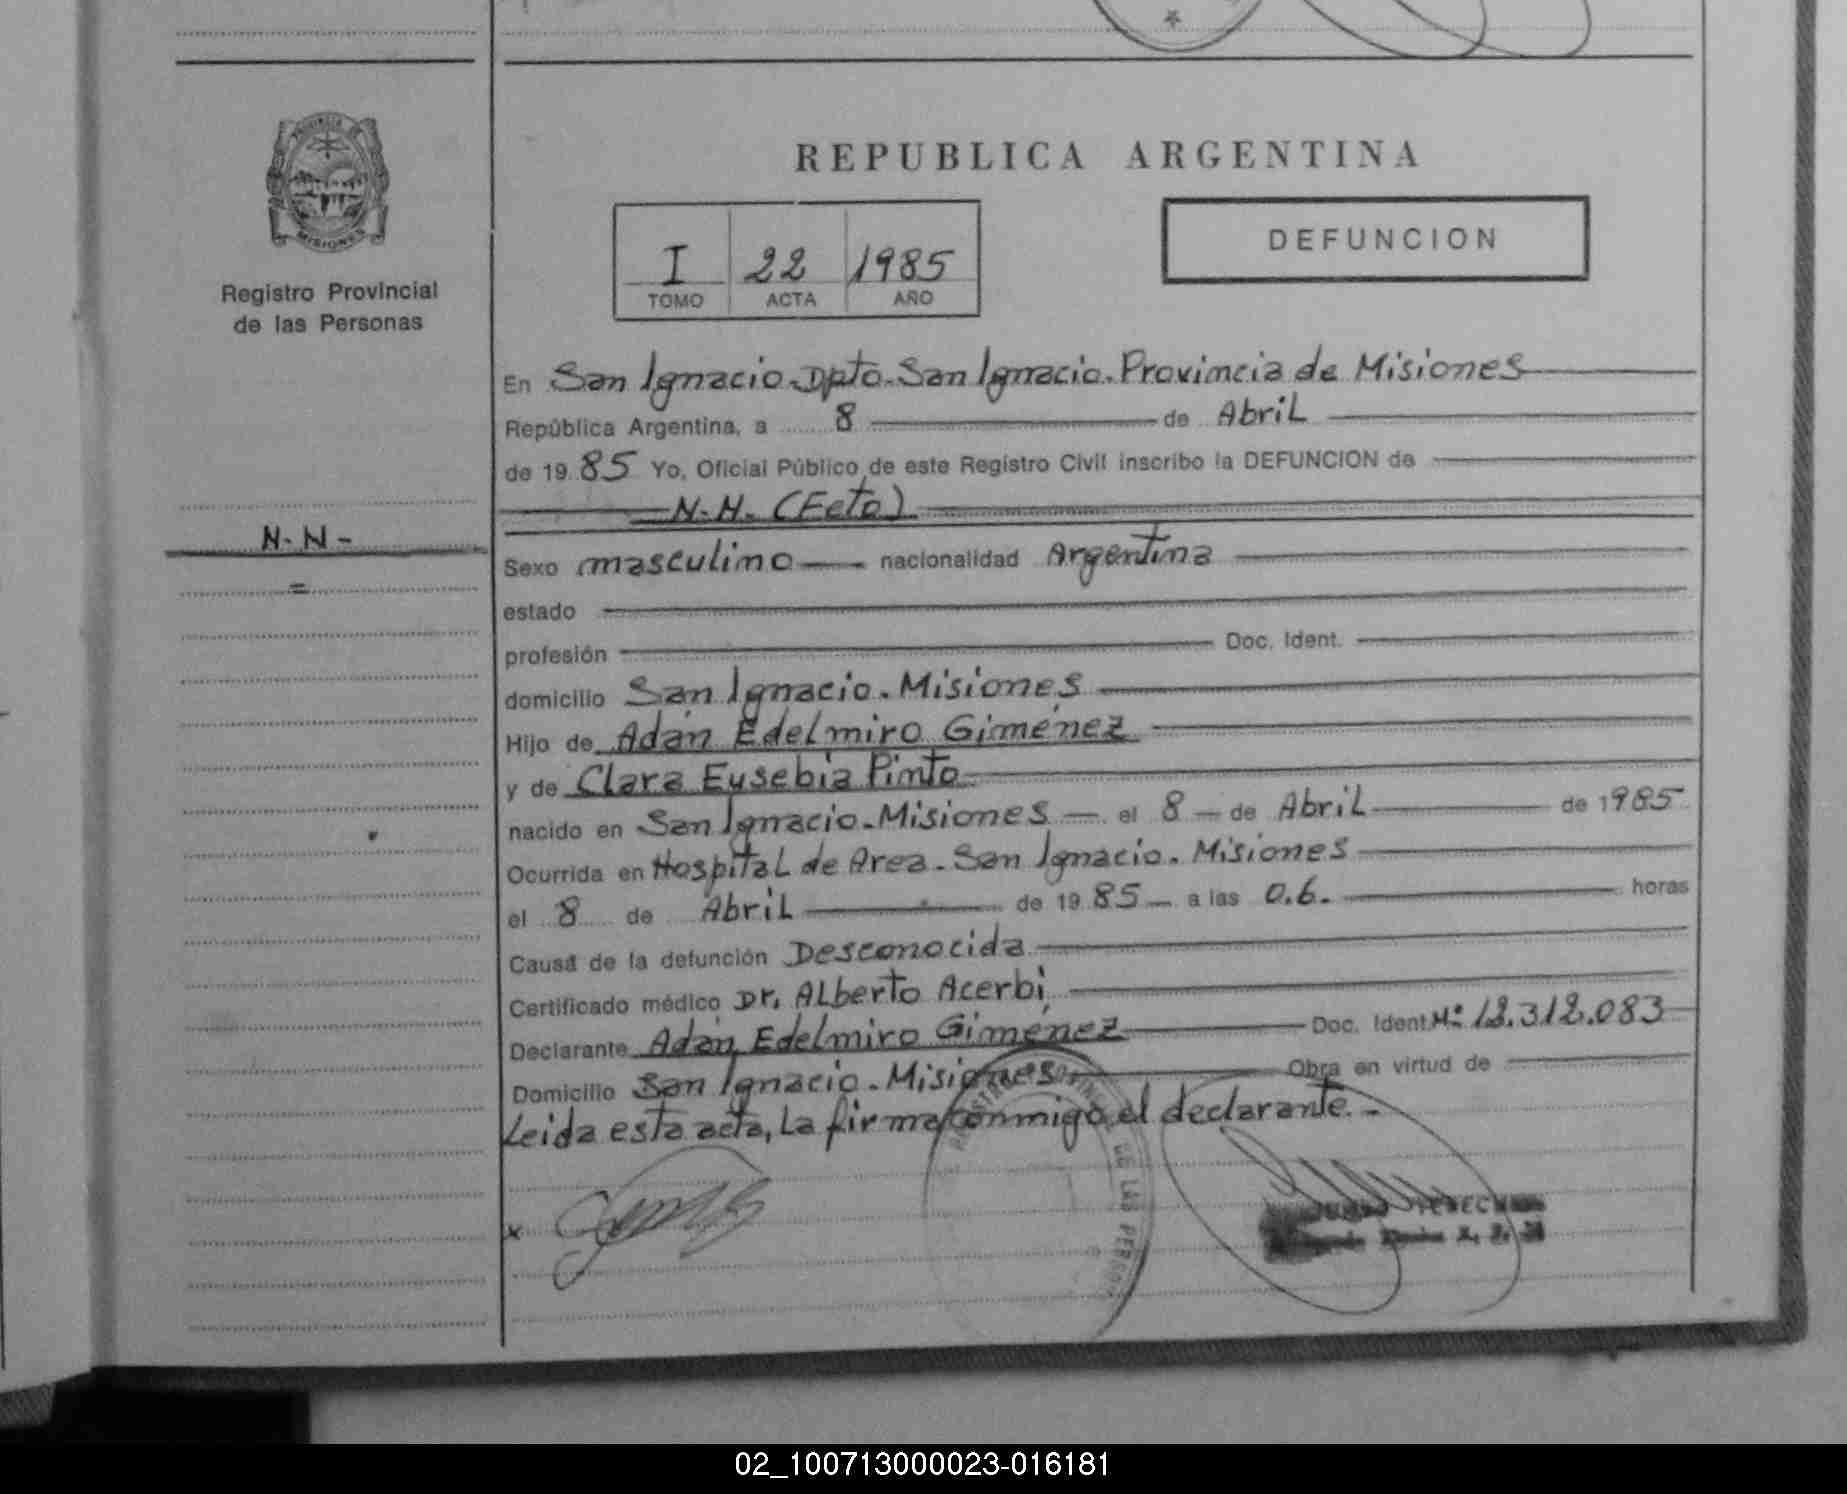 PROVINCIA DE
MISIONES
Registro Provincial
de las Personas
N-N-
REPUBLICA ARGENTINA
I 22 1985
TOMO ACTA AÑO
DEFUNCION
En San Ignacio-Dpto-San Ignacio. Provincia de Misiones
República Argentina, a 8 de Abril
de 19 85 Yo, Oficial Público de este Registro Civil inscribo la DEFUNCION de
N.N. (Feto)
Sexo masculino nacionalidad Argentina
estado
profesión Doc. Ident.
domicilio San Ignacio. Misiones
Hijo de Adán Edelmiro Giménez
y de Clara Eusebia Pinto
nacido en San Ignacio-Misiones el 8 de Abril de 1985
Ocurrida en Hospital de Area-San Ignacio. Misiones
el 8 de Abril de 19 85 a las 0.6. horas
Causa de la defunción Desconocida
Certificado médico Dr. Alberto Acerbi
Declarante Adán Edelmiro Giménez Doc. Ident. Nº 12.312.083
Domicilio San Ignacio-Misiones Obra en virtud de
Leida esta acta, la firma conmigo el declarante.-
x
DE LAS PERSO
02_100713000023-016181